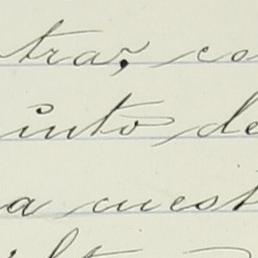 tra, co
into de
a cuest